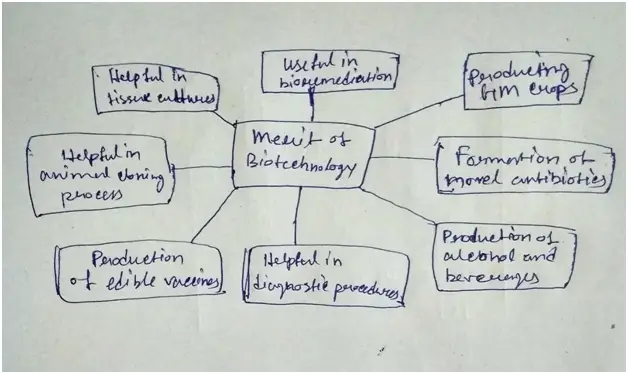 Helpful in
tissue cultures
Useful in
bioremediation
Producting
GM crops
Merit of
Biotechnology
Helpful in
animal cloning
process
Formation of
novel antibiotics
Production
of edible vaccines
Helpful in
diagnostic procedures
Production of
alcohol and
beverages